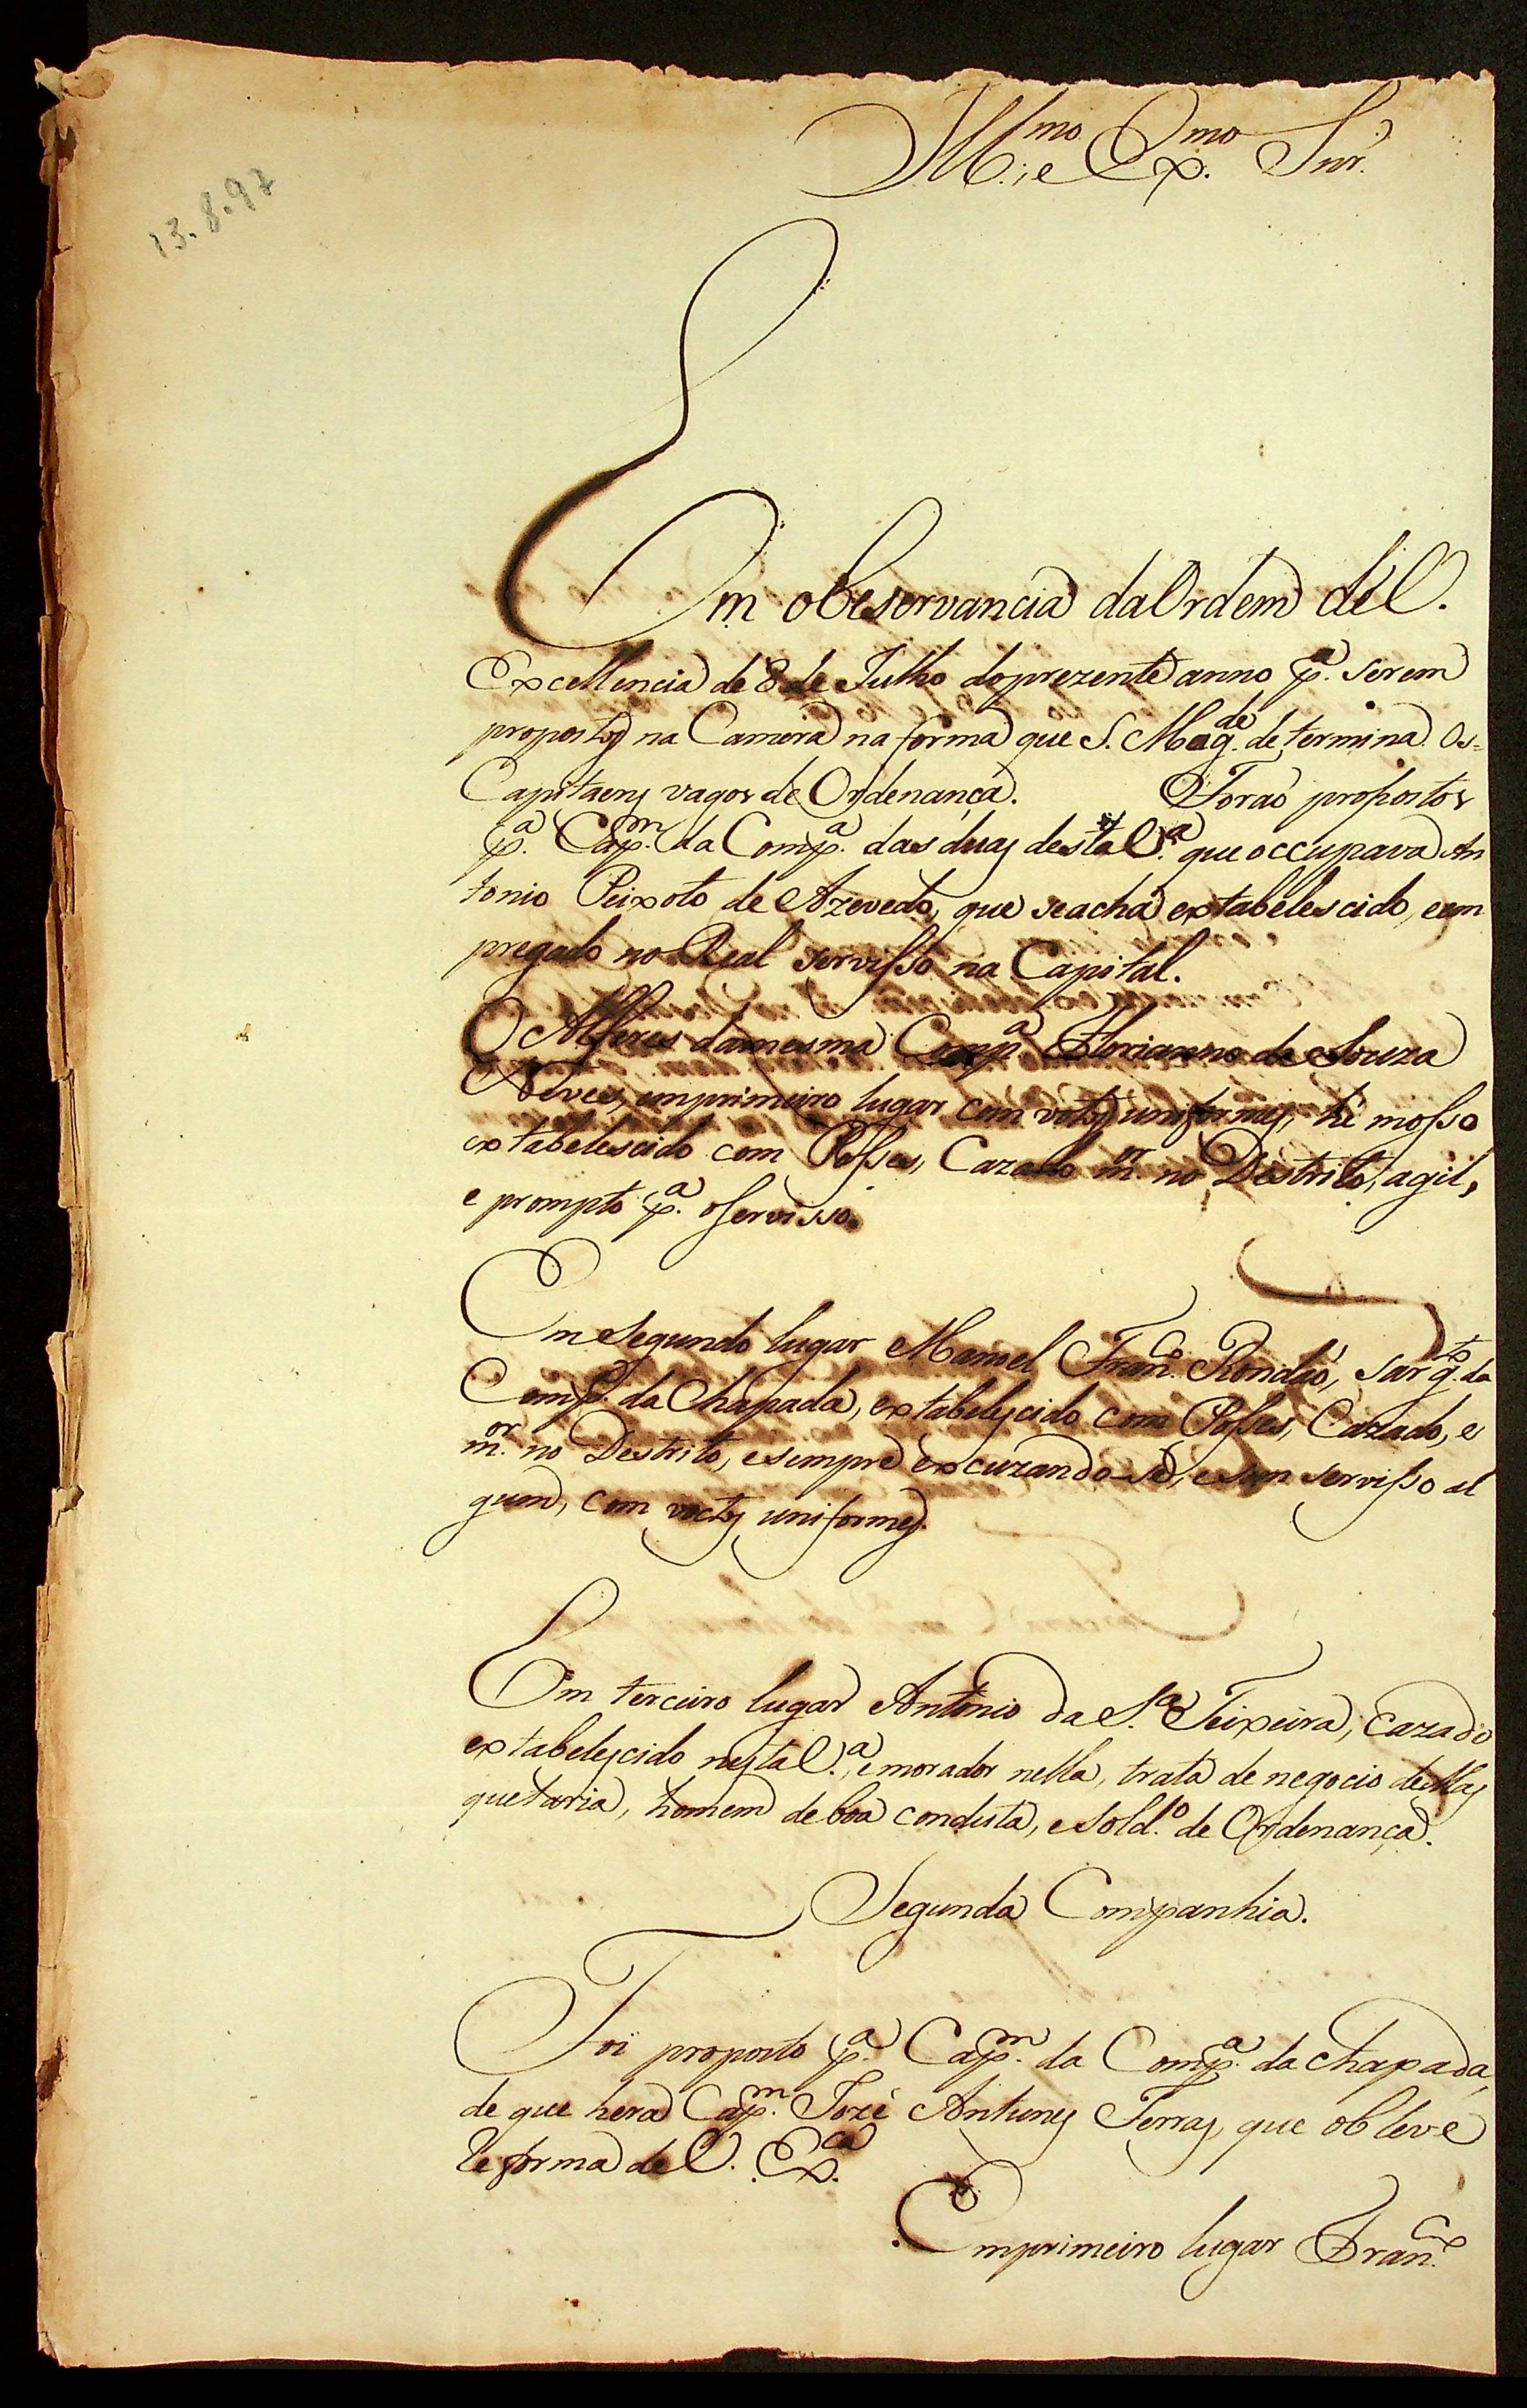 Ill.mo e Ex.mo Snr.
13.8.97
Em obeservancia da Ordem de V.
Excellencia de 8 de Julho do prezente anno p.a serem
propostos na Camera na forma que S. Mag.de determina os
Capitaens vagos de Ordenança. Foraõ propostos
p.a Cap.m da Comp.a das duas desta V.a que occupava An
tonio Peixoto de Azevedo, que se acha extabelescido, e em
pregado no Real servisso na Capital.
O Alferes da mesma Comp.a Florianno de Souza
Neves, em primeiro lugar com votos uniformes, hé mosso
extabelescido com Posses, Cazado m.or no Destrito, agil,
e prompto p.a o servisso.
Em segundo lugar Manoel Fran.co Rondaõ, sarg.to da
Comp.a da Chapada, extabelescido com Posses, Cazado, e
m.or no Destrito, e sempre excuzando-se, e sem servisso al
gum, com voctos uniformes.
Em terceiro lugar Antonio da S.a Teixeira, cazado
extabelescido nesta V.a, e morador nella, trata de negocio de Mas
quetaria, homem de boa condusta, e sold.o de Ordenança.
Segunda Companhia.
Foi proposto p.a Cap.m da Comp.a da Chapada,
de que hera Cap.m Jozé Antunes Ferras, que obteve
Reforma de V. Ex.ca
Em primeiro lugar Fran.co